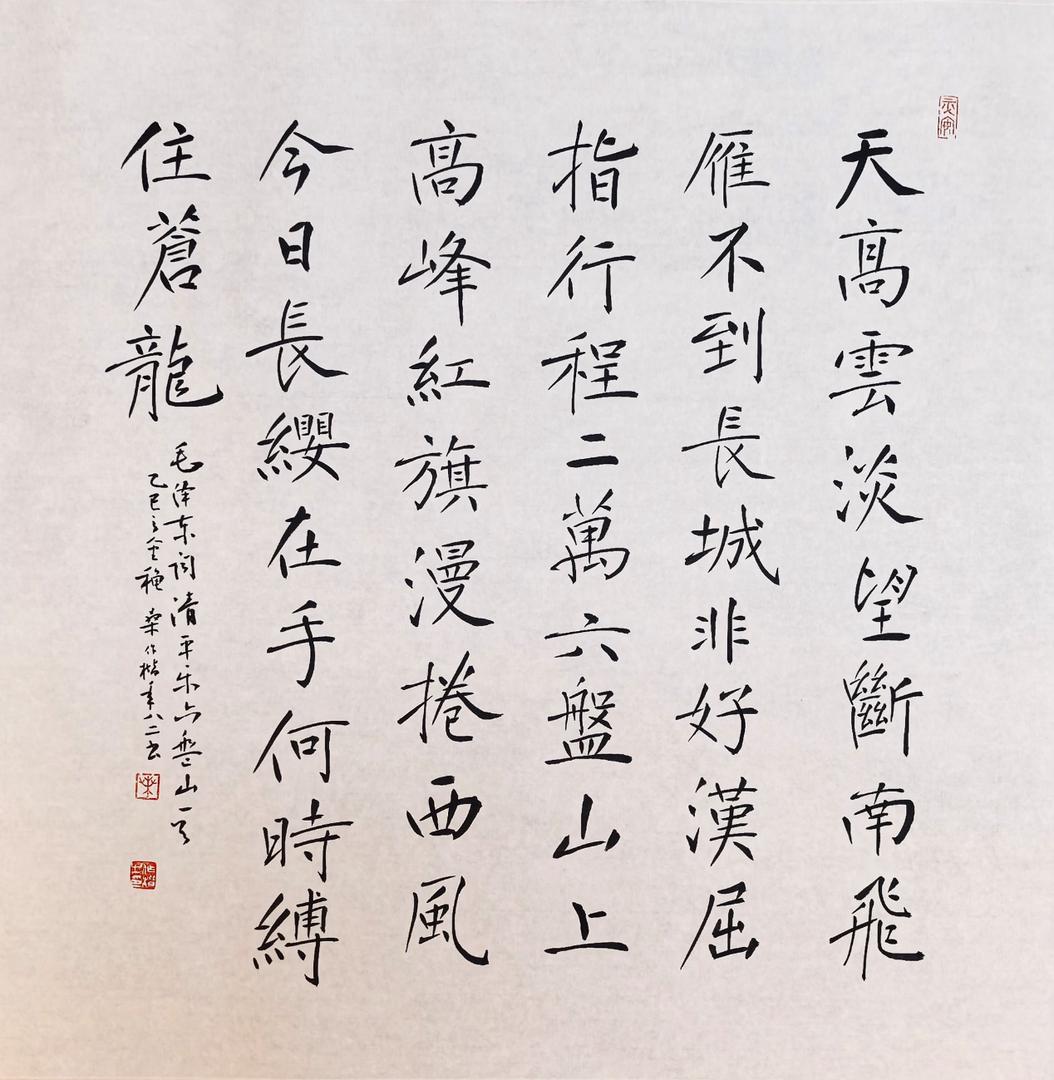 天高雲淡望斷南飛
雁不到長城非好漢屈
指行程二萬六盤山上
高峰紅旗漫捲西風
今日長纓在手何時縛
住蒼龍
毛泽东词清平乐六盘山一首
乙巳之金秋桑作楷年八二书